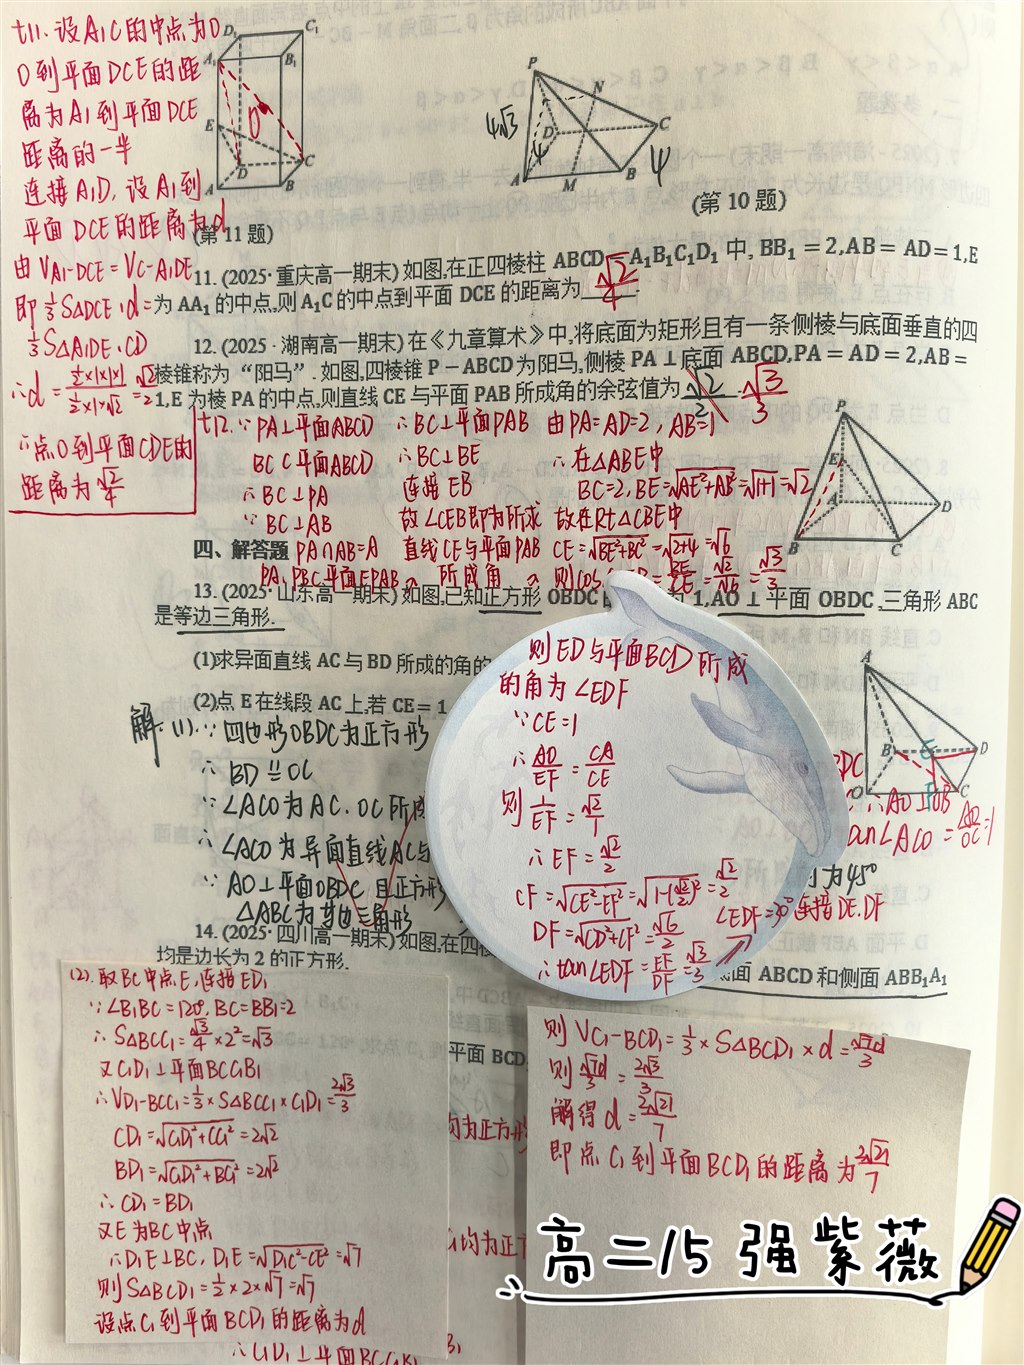 t11. 设A₁C的中点为O
O到平面DCE的距
离为A₁到平面DCE
距离的一半
连接A₁D, 设A₁到
平面DCE的距离为d
由 V_A₁-DCE = V_C-A₁DE
即 ⅓S△DCE·d =
⅓S△A₁DE·CD
∴d = (½×1×1×1)/(½×1×√2) = √2/2
∴点O到平面CDE的
距离为√2/4
D₁ C₁
A₁ B₁
E O
D C
A B
(第11题)
P
N
4√3
D C
4 4
A M B
(第10题)
11. (2025·重庆高一期末) 如图,在正四棱柱 ABCD-A₁B₁C₁D₁ 中, BB₁=2,AB=AD=1,E
为 AA₁ 的中点,则 A₁C 的中点到平面 DCE 的距离为 √2/4
12. (2025·湖南高一期末) 在《九章算术》中,将底面为矩形且有一条侧棱与底面垂直的四
棱锥称为“阳马”. 如图,四棱锥 P-ABCD 为阳马,侧棱 PA⊥底面 ABCD,PA=AD=2,AB=
1,E 为棱 PA 的中点,则直线 CE 与平面 PAB 所成角的余弦值为 √2/2 √3/3
t12. ∵PA⊥平面ABCD
BC⊂平面ABCD
∴BC⊥PA
∵BC⊥AB
PA∩AB=A
PA、PBC平面EPAB
∴BC⊥平面PAB
∴BC⊥BE
连接EB
故∠CEB即为所求
直线CE与平面PAB
所成角
由PA=AD=2, AB=1
∴在△ABE中
BC=2, BE=√(AE²+AB²)=√(1+1)=√2
故在Rt△CBE中
CE=√(BE²+BC²)=√(2+4)=√6
则cos = BE/CE = √2/√6 = √3/3
P
E
A D
B C
四、解答题
13. (2025·山东高一期末) 如图,已知正方形 OBDC 1,AO⊥平面 OBDC,三角形 ABC
是等边三角形.
(1)求异面直线 AC 与 BD 所成的角的
(2)点 E 在线段 AC 上,若 CE=1
解:(1)∵四边形OBDC为正方形
∴BD∥OC
∵∠ACO为AC、OC所成
∴∠ACO为异面直线AC与
∵AO⊥平面OBDC 且正方形
△ABC为等边三角形
BDC
∴AO⊥OB
tan∠ACO = AO/OC = 1
为45°
A
B E D
O F C
则ED与平面BCD所成
的角为∠EDF
∵CE=1
∴AO/EF = CA/CE
则 1/EF = √2/1
∴EF=√2/2
CF=√(CE²-EF²)=√(1-(√2/2)²)=√2/2
DF=√(CD²+CF²)=√6/2
连接DE、DF
∴tan∠EDF=EF/DF=√3/3
∠EDF=30°
14. (2025·四川高一期末) 如图,在四棱
底面 ABCD 和侧面 ABB₁A₁
均是边长为 2 的正方形.
平面 BCD
(2). 取BC中点E,连接ED₁
∵∠B₁BC=120°, BC=BB₁=2
∴S△BCC₁=√3/4×2²=√3
又C₁D₁⊥平面BCC₁B₁
∴V_D₁-BCC₁=⅓×S△BCC₁×C₁D₁=2√3/3
CD₁=√(C₁D₁²+CC₁²)=2√2
BD₁=√(C₁D₁²+BC₁²)=2√2
∴CD₁=BD₁
又E为BC中点
∴D₁E⊥BC, D₁E=√(D₁C²-CE²)=√7
则S△BCD₁=½×2×√7=√7
设点C₁到平面BCD₁的距离为d
则V_C₁-BCD₁=⅓×S△BCD₁×d=√7d/3
则 √7d/3 = 2√3/3
解得 d=2√21/7
即点C₁到平面BCD₁的距离为2√21/7
均为正方形
均为正方
∴C₁D₁⊥平面BCC₁B₁
高二15 强紫薇